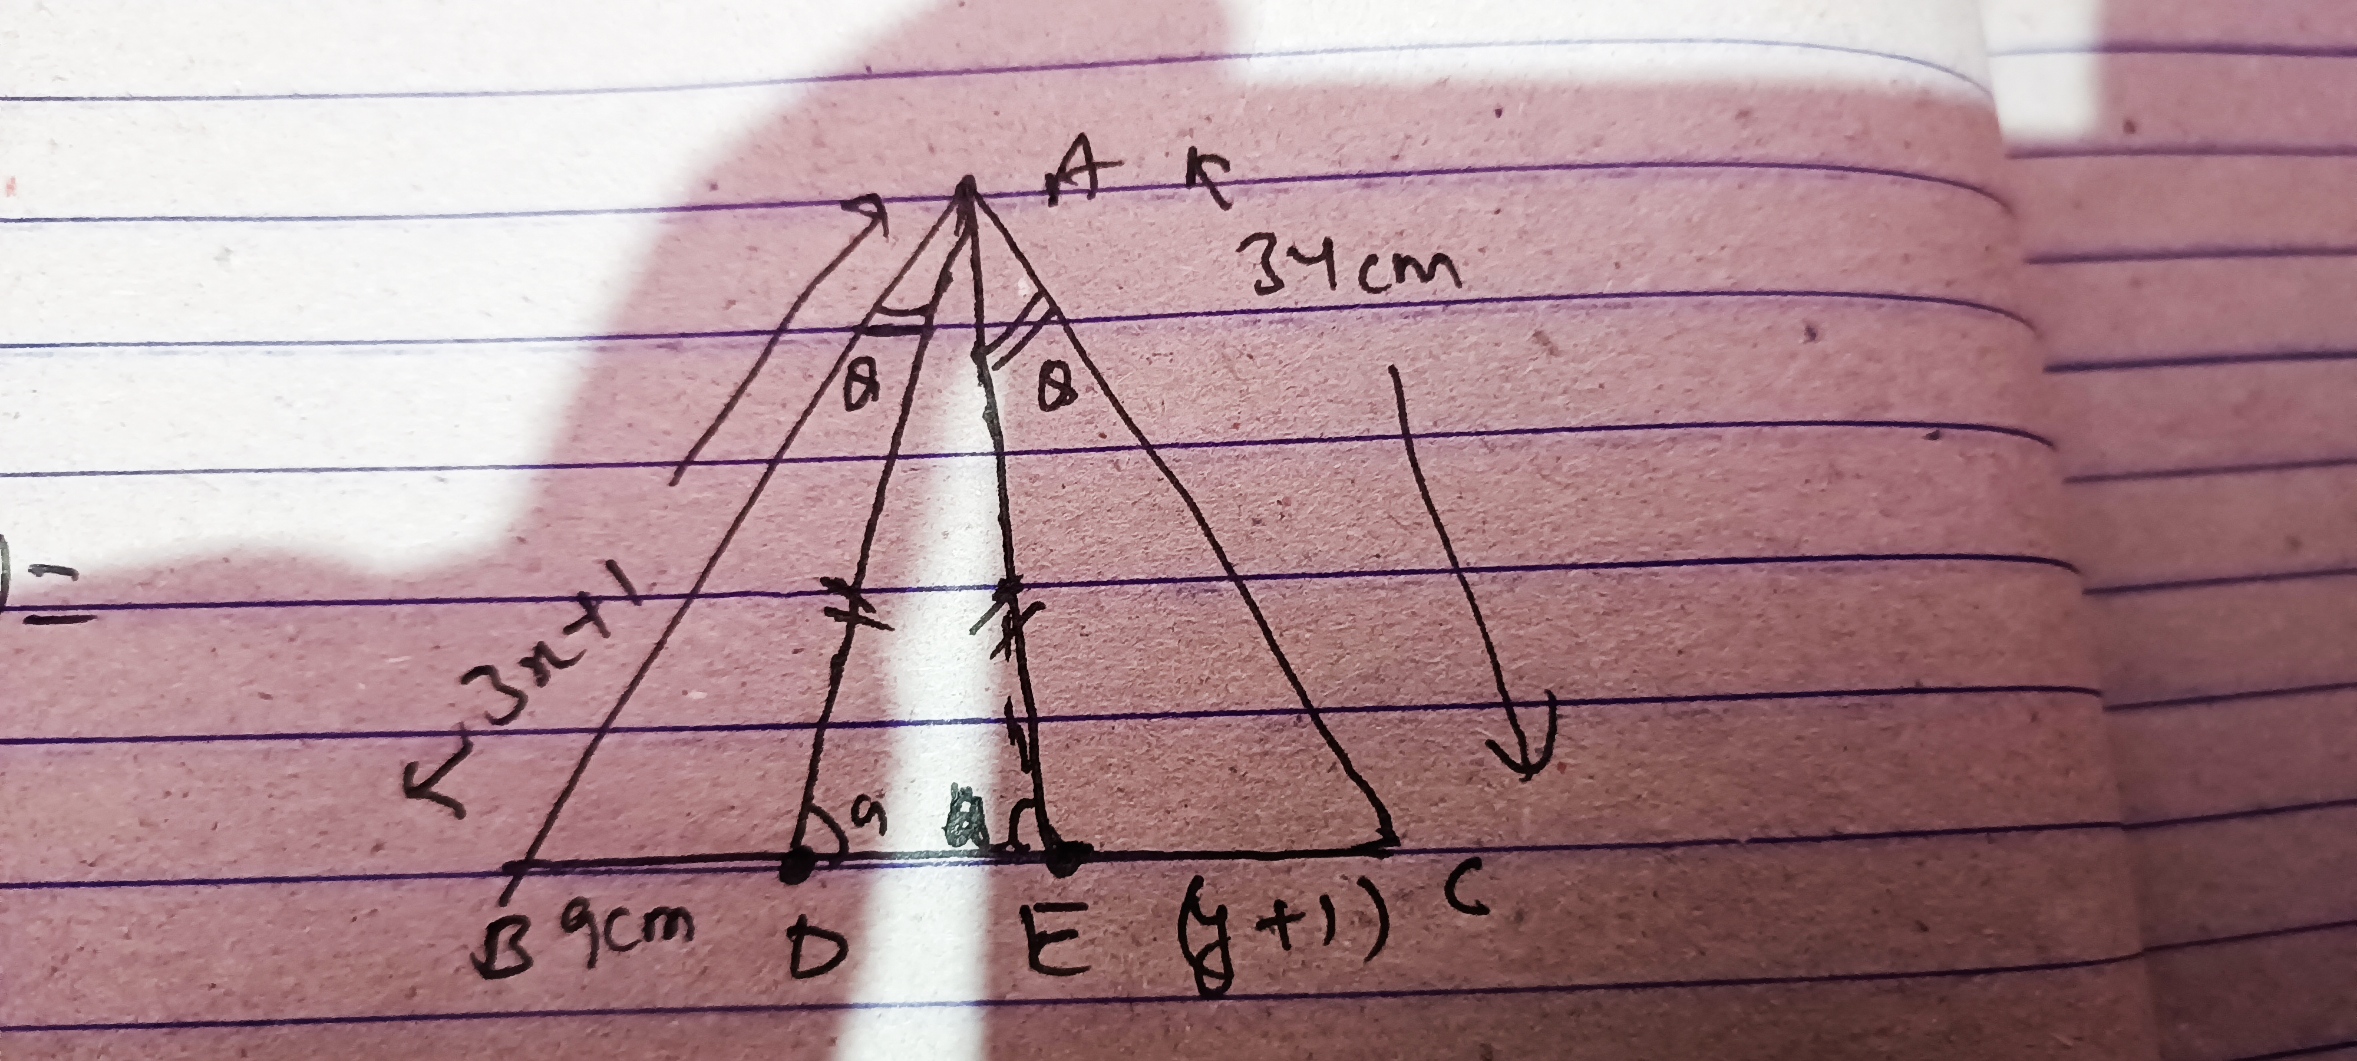 A K
34cm
θ θ
3x+1
a
B 9cm D E (y+1) C
=